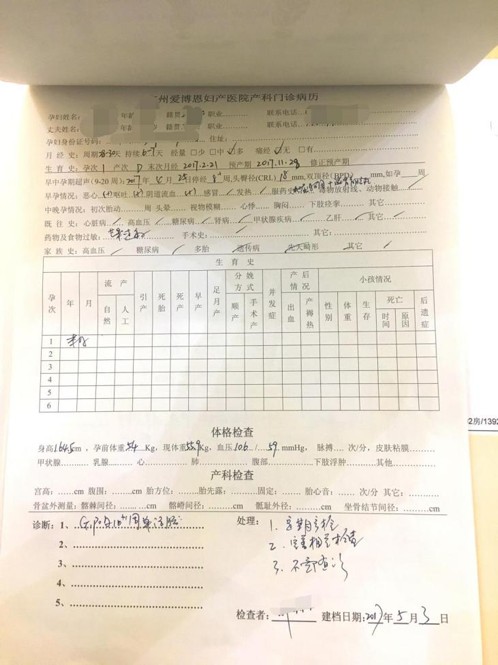 州爱博恩妇产医院产科门诊病历
孕妇姓名: 年龄 籍贯 职业 联系电话
丈夫姓名: 年龄 籍贯 职业 联系电话
孕妇身份证号码: 住址:
月 经 史: 周期 天 持续 6-7 天 经量 少 中 多 痛经 无 有
生 育 史: 孕次 1 产次 0 末次月经 2017.2.21 预产期 2017.11.28 修正预产期
早中孕期超声(9-20 周): 2017 年 月 日 停经 周,头臀径(CRL) 18 mm,双顶径(BPD) mm,如孕 周
早孕情况: 恶心 呕吐 阴道流血 感冒 发热 服药史 动物接触
中晚孕情况: 初次胎动 周 头晕 视物模糊 心悸 胸闷 下肢痉挛 其它
既 往 史: 心脏病 高血压 糖尿病 肾病 甲状腺疾病 乙肝 其它
药物及食物过敏: 手术史: 其它
家 族 史: 高血压 糖尿病 多胎 遗传病 先天畸形 其它
生 育 史
孕次 年 月 流 产 自然 人工 引产 死胎 死产 早产 足月产 分 娩 方 式 顺产 手术产 并发症 产 后 情 况 出血 产褥热 小孩情况 性别 体重 生存 死亡 时间 原因 后遗症
1 本孕
2
3
4
5
6
体格检查
身高 164.5 cm , 孕前体重 54 Kg, 现体重 55.9 Kg, 血压 106 / 59 mmHg, 脉搏 次/分, 皮肤粘膜
甲状腺 乳腺 心 肺 腹部 下肢浮肿 其他
产科检查
宫高: cm 腹围: cm 胎方位: 胎先露: 固定: 胎心音: 次/分 其它:
骨盆外测量: 髂棘间径: cm 髂嵴间径: cm 骶耻外径: cm 坐骨结节间径: cm
诊断: 1、 处理: 1. 定期产检
2、 2.
3、 3. 不适随诊
4、
5、
检查者: 建档日期: 2017 年 5 月 3 日
2房/1392